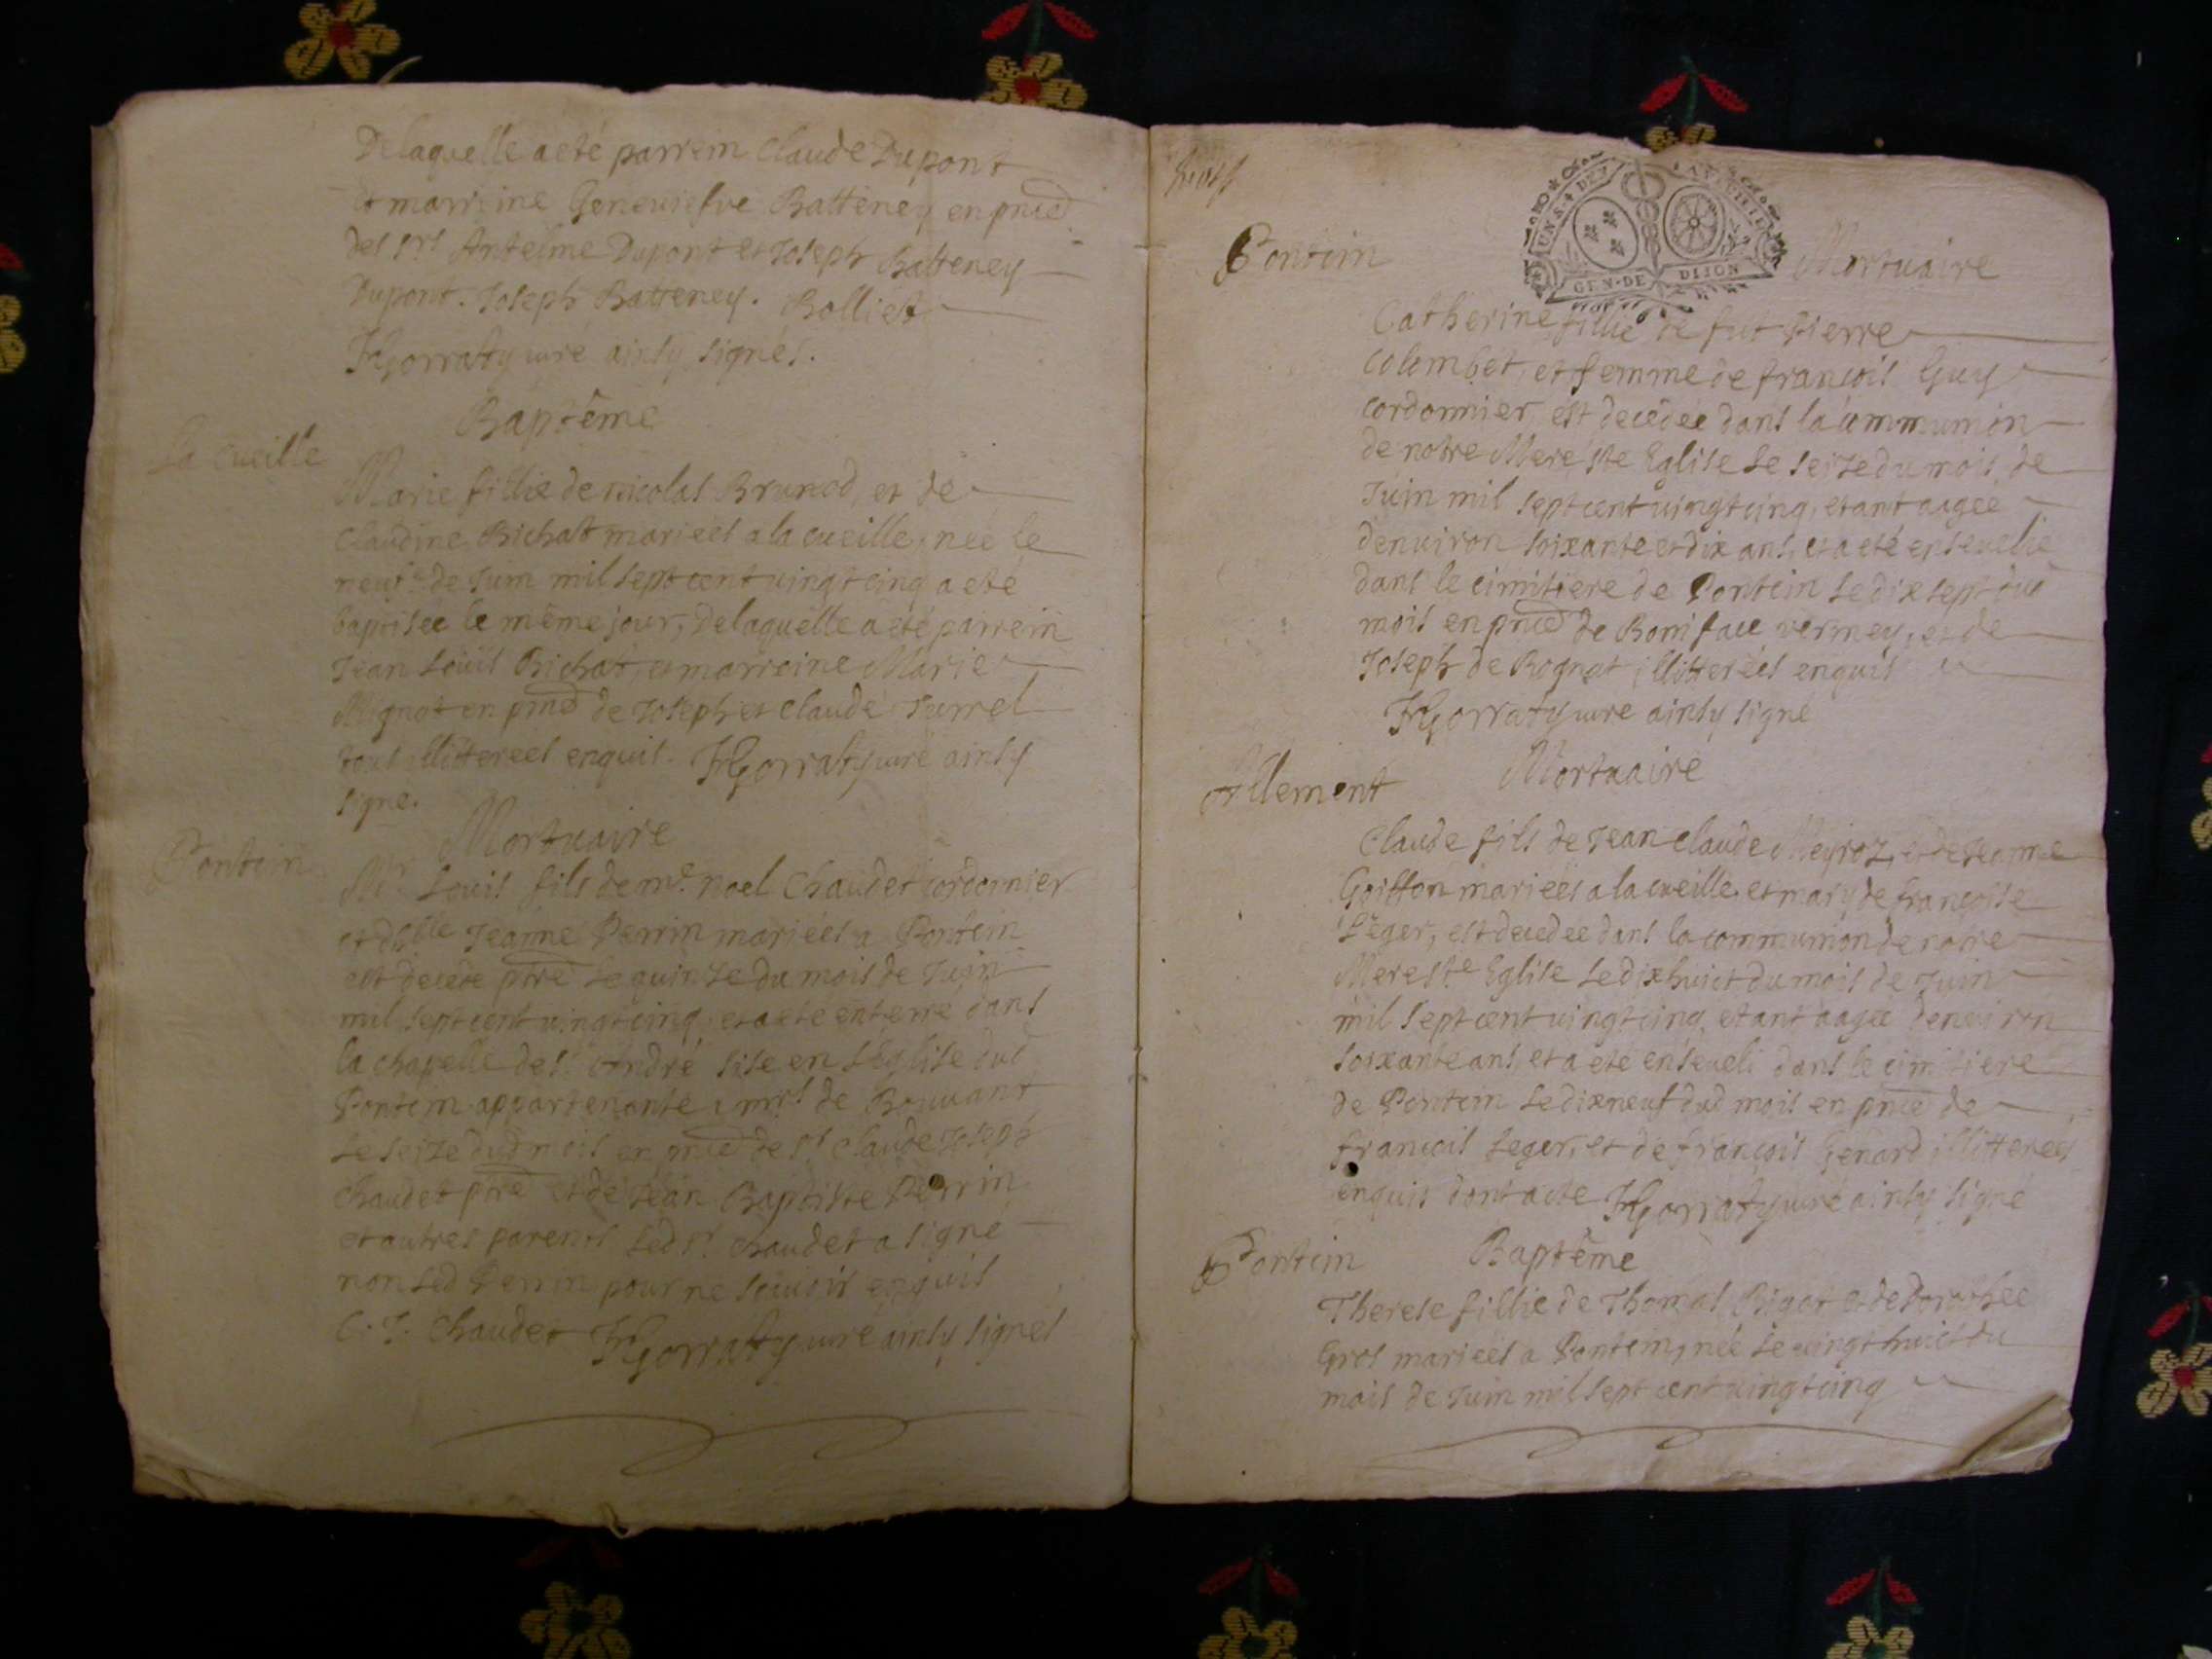 Delaquelle a eté parrein Claude Dupont
et marreine Geneuiefve Batteney en pnce
des srs Antelme Dupont et Joseph Batteney
Dupont. Joseph Batteney. Bolliet
Gorraty curé ainsy signés.
Baptême
La Cueille
Marie fillie de nicolas Brunod, et de
Claudine Bichat mariées a la cueille, née le
neuf de Juin mil sept cent uingt cinq a eté
baptisée le même jour, Delaquelle a eté parrein
Jean Louis Bichat, et marreine Marie
Mignot en pnce de Joseph et Claude Jurrel
tous illitterees enquis. Gorraty curé ainsy
signé.
Mortuaire
Pontein
Me Louis fils de me. noel Chaudet cordonnier
et Jeanne Perrin mariées a Pontein
est decede pire Le quinze du mois de Juin
mil sept cent uingt cinq, et a eté enterré dans
la chapelle de st. André sise en L'Eglise dud
Pontein appartenante a mrs de Bouuant
Le seize dud mois en pnce de sr Claude Joseph
Chaudet ptre et de Jean Baptiste Perrin
et autres parents Led sr. Chaudet a signé
non Led Perrin pour ne scauoir enquis
C. J. Chaudet Gorraty curé ainsy signés
GEN. DE DIJON
Pontein
Mortuaire
Catherine fillie de fut Pierre
Colombet, et femme de francois Guy
cordonnier, est decedée dans la communion
de notre Mere ste Eglise Le seize du mois de
Juin mil sept cent uingt cinq, etant aagée
denuiron soixante et dix ans, et a eté enseuelie
dans le cimitiere de Pontein Le dix sept dud
mois en pnce de Boniface vermey, et de
Joseph de Rognat illitterées enquis
Gorraty curé ainsy signé
Allement
Mortuaire
Claude fils de Jean Claude Meyroz, et de Jeanne
Goiffon mariées a la cueille, et mary de francoise
Leger, est decedee dans la communion de notre
Mere ste Eglise Le dix huict du mois de Juin
mil sept cent uingt cinq, etant aagée denuiron
soixante ans, et a eté enseueli dans le cimitiere
de Pontein Le dix neuf dud mois en pnce de
francois Leger, et de francois Genard illitterees
enquis dont acte Gorraty curé ainsy signé
Pontein
Baptême
Therese fillie de Thomas Bigot et de Dorothee
Gros mariées a Pontein, née Le uingt huict du
mois de Juin mil sept cent uingt cinq